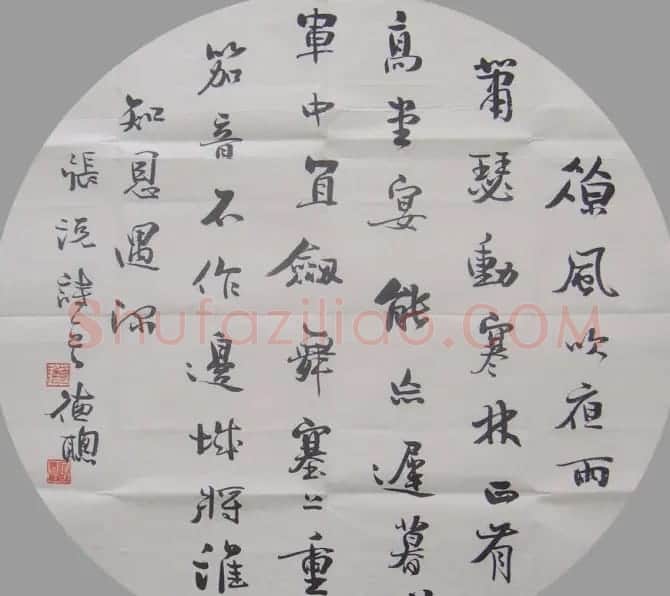 涼風吹夜雨
蕭瑟動寒林正有
高堂宴能忘遲暮
軍中宜劍舞塞上重
笳音不作邊城將誰
知恩遇深
張説詩一首 德聰
Shufaziliao.COM